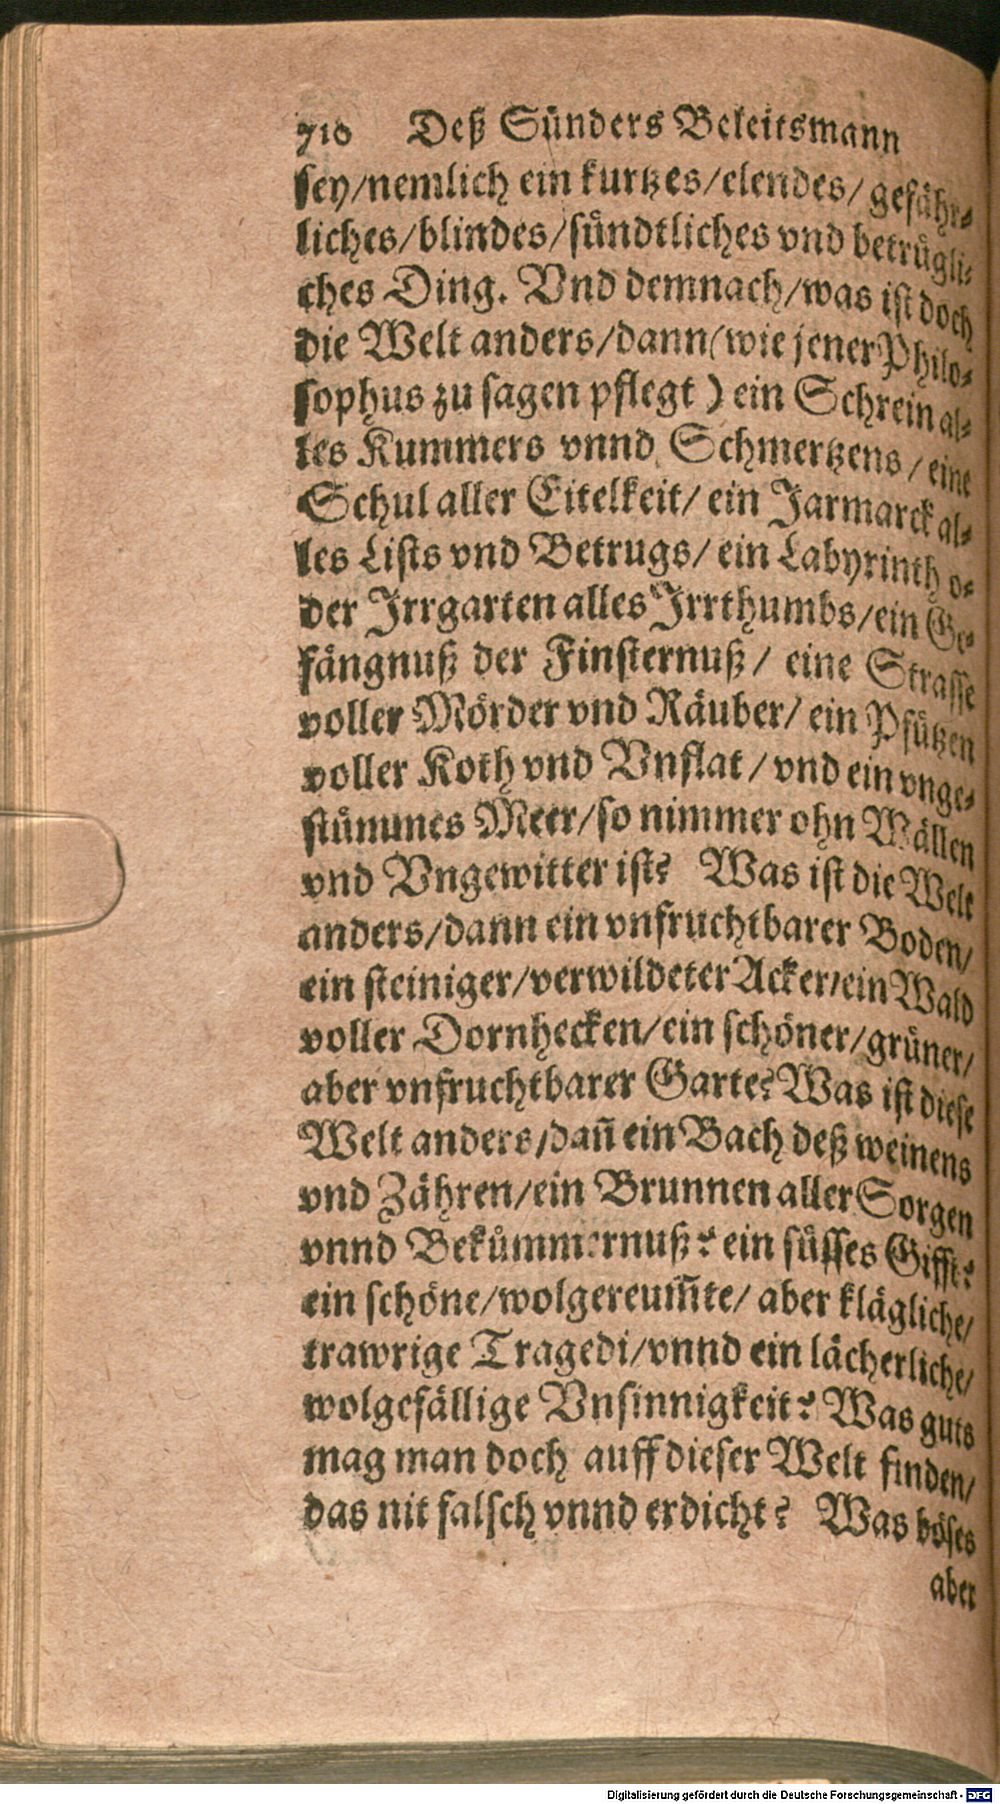 710 Deß Sünders Beleitsmann
sey/nemlich ein kurtzes/elendes/ gefähr-
liches/blindes/sündtliches vnd betrügli-
ches Ding. Vnd demnach/was ist doch
die Welt anders/dann (wie jener Philo-
sophus zu sagen pflegt) ein Schrein al-
les Kummers vnnd Schmertzens/eine
Schul aller Eitelkeit/ ein Jarmarck al-
les Lists vnd Betrugs/ ein Labyrinth o-
der Jrrgarten alles Jrrthumbs/ein Ge-
fängnuß der Finsternuß/ eine Strasse
voller Mörder vnd Räuber/ ein Pfützen
voller Koth vnd Vnflat/vnd ein vnge-
stümmes Meer/so nimmer ohn Wällen
vnd Vngewitter ist? Was ist die Welt
anders/dann ein vnfruchtbarer Boden/
ein steiniger/verwildeter Acker/ein Wald
voller Dornhecken/ein schöner/grüner/
aber vnfruchtbarer Garte? Was ist diese
Welt anders/dañ ein Bach deß weinens
vnd Zähren/ein Brunnen aller Sorgen
vnnd Bekümmernuß? ein süsses Gifft?
ein schöne/wolgereum̃te/ aber klägliche/
trawrige Tragedi/vnnd ein lächerliche/
wolgefällige Vnsinnigkeit? Was guts
mag man doch auff dieser Welt finden/
das nit falsch vnnd erdicht? Was böses
aber
Digitalisierung gefördert durch die Deutsche Forschungsgemeinschaft - DFG